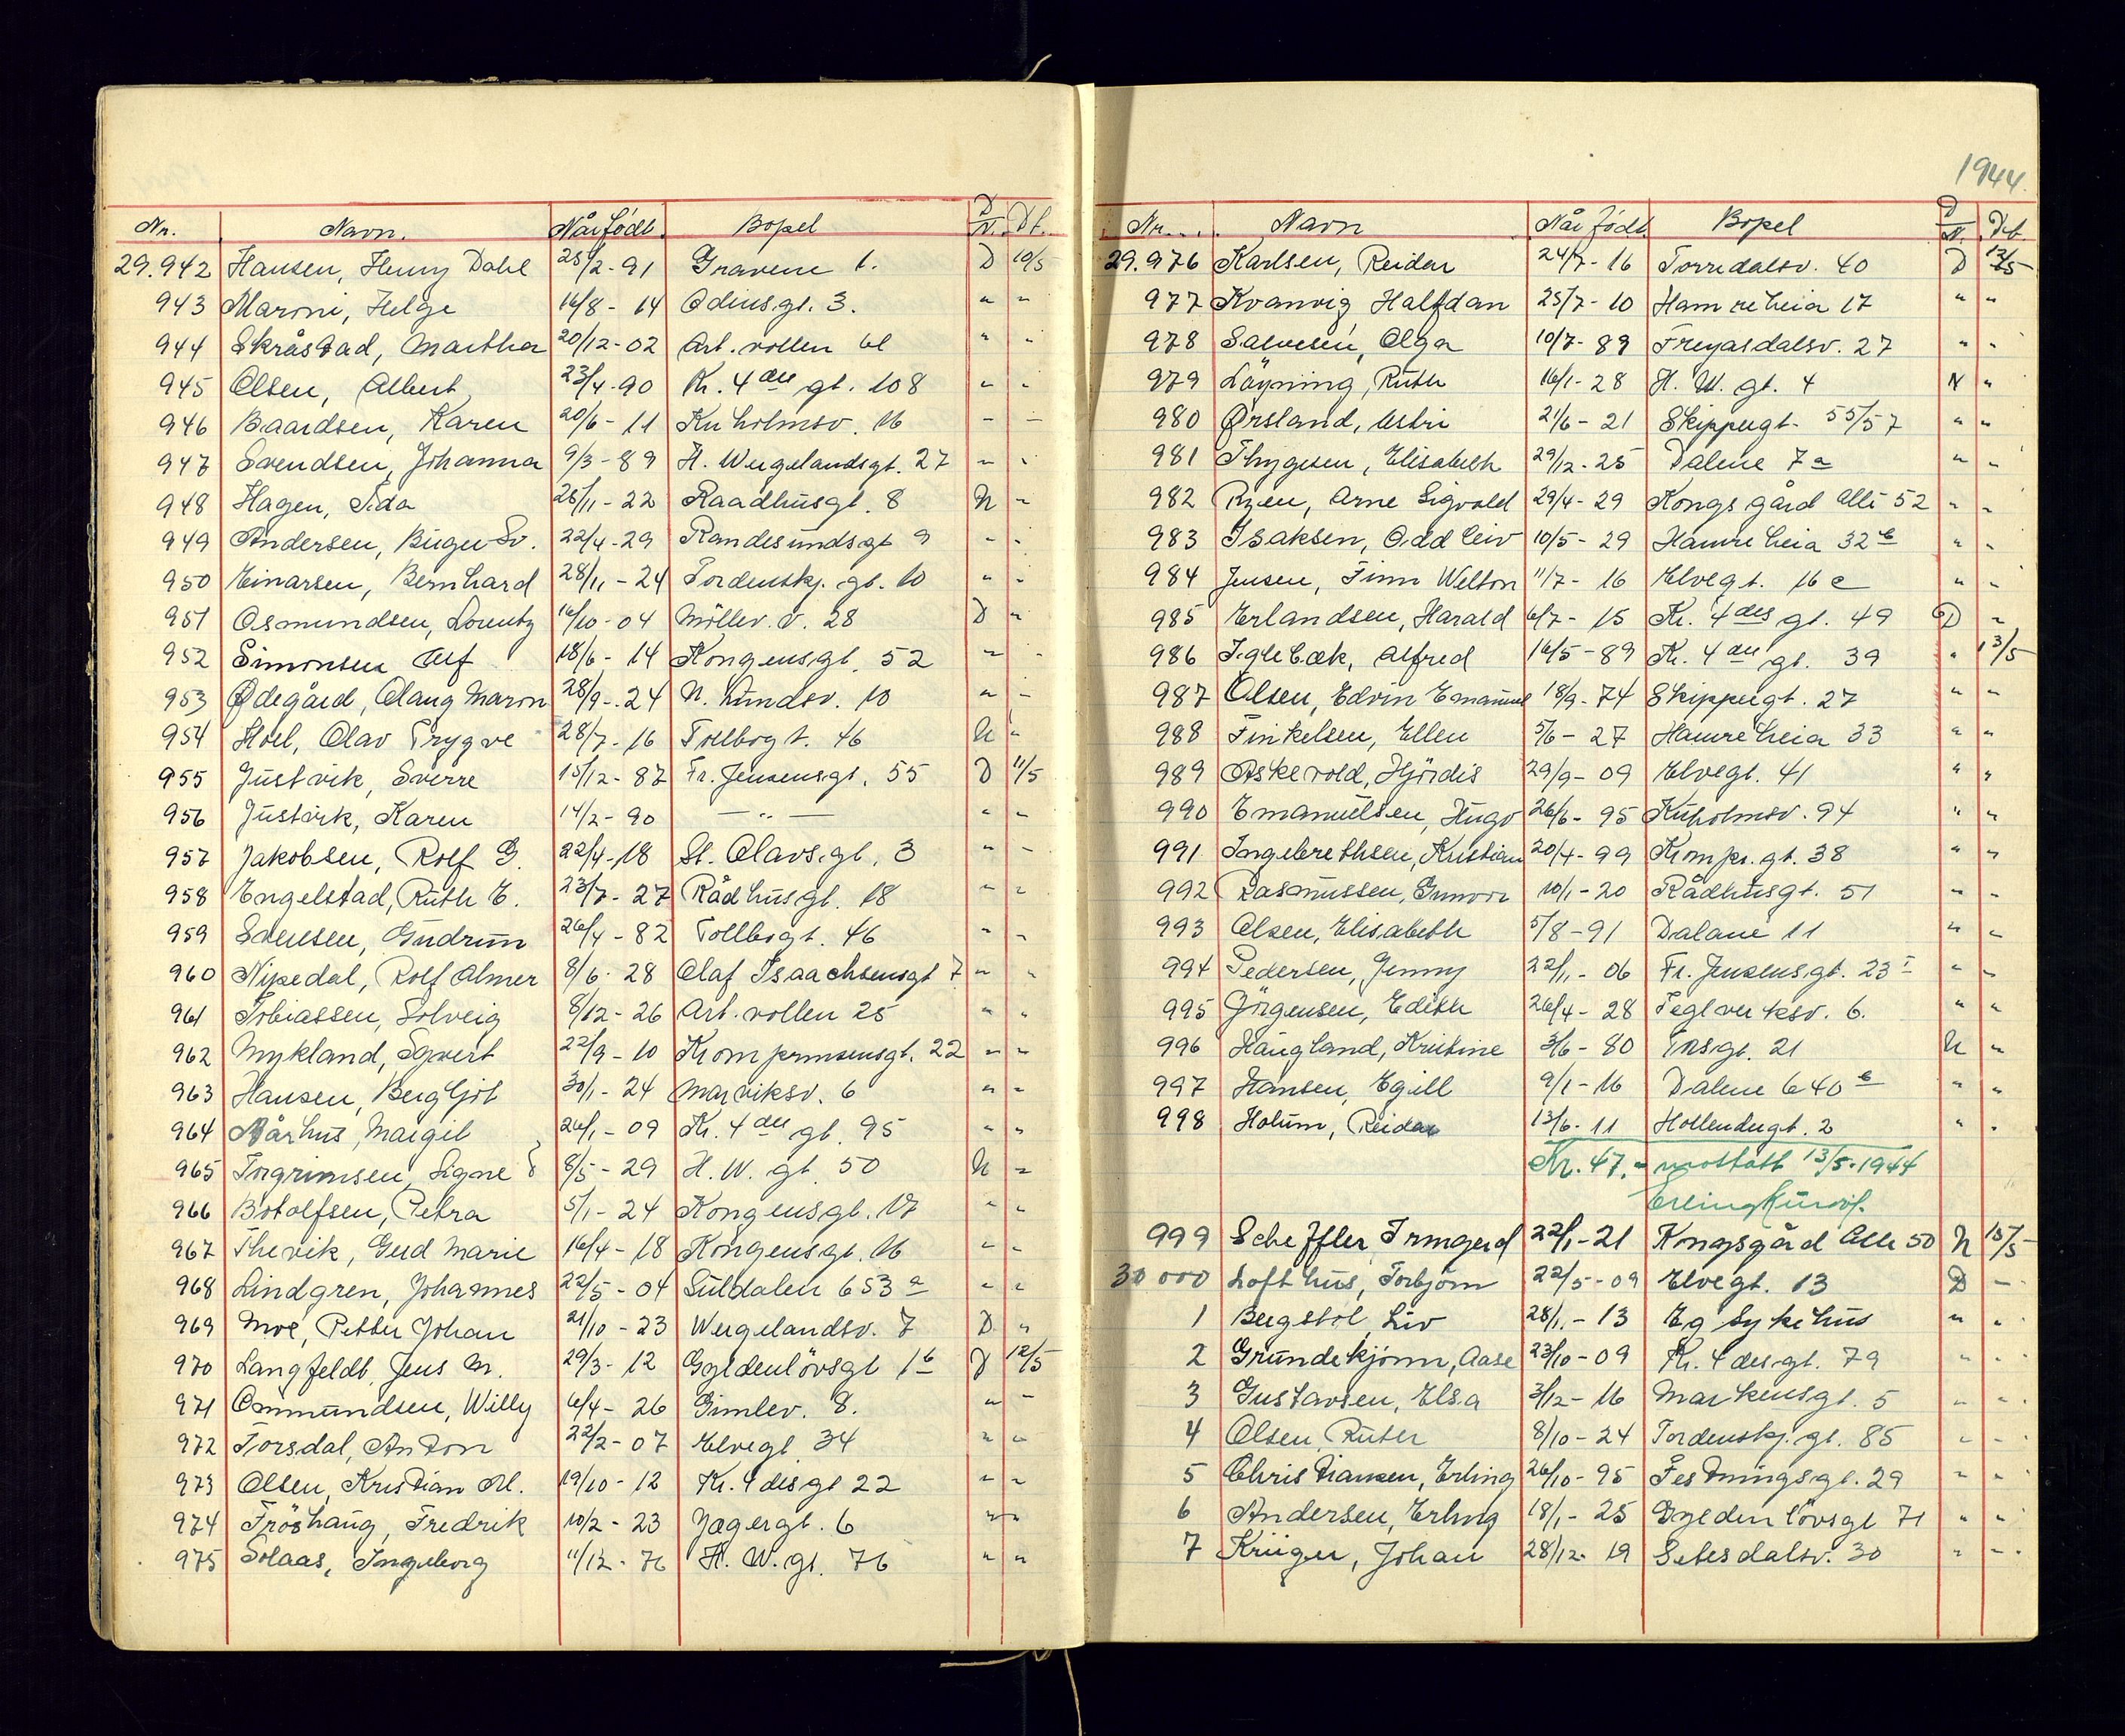 Nr. Navn. Når født. Bopel D/N. Dt.
29.942 Hansen, Henny Dahl 25/2-91 Gravene 1. D 10/5
943 Maroni, Helge 16/8-14 Odinsgt. 3. " "
944 Skråstad, Martha 20/12-02 Arb. vollen 61 " "
945 Olsen, Albert 23/4-90 Kr. 4des gt. 108 " "
946 Baardsen, Karen 20/6-11 Kuholmsv. 16 - -
947 Svendsen, Johanna 9/3-89 H. Wergelandsgt. 27 " "
948 Hagen, Ida 25/11-22 Raadhusgt. 8 N "
949 Andersen, Birger Sv. 22/4-29 Randesundsgt 9 " "
950 Einarsen, Bernhard 28/11-24 Tordenskj. gt. 10 " "
951 Osmundsen, Lorentz 16/10-04 Möllev. V. 28 D "
952 Simonsen Alf 18/6-14 Kongensgt. 52 " "
953 Ødegård, Olaug Maron 28/9-24 N. Lundsv. 10 " "
954 Hoel, Olav Trygve 28/7-16 Tollbogt. 46 N "
955 Justvik, Sverre 15/12-87 Fr. Jensensgt. 55 D 11/5
956 Justvik, Karen 14/2-90 — " — " "
957 Jakobsen, Rolf G. 22/4-18 St. Olavsgt. 3 " "
958 Engelstad, Ruth E. 23/7-27 Rådhusgt. 18 " "
959 Svensen, Gudrun 26/4-82 Tollbogt. 46 " "
960 Nipedal, Rolf Almer 8/6-28 Olaf Isaachsensgt 7. " "
961 Tobiassen, Solveig 8/12-26 Arb. vollen 25 " "
962 Mykland, Syvert 22/9-10 Kronprinsensgt. 22 " "
963 Hansen, Bergljot 30/1-24 Marviksv. 6 " "
964 Aårhus, Margit 26/1-09 Kr. 4des gt. 95 " "
965 Torgrimsen, Signe 8/5-29 H. W. gt. 50 N "
966 Botolfsen, Petra 5/1-24 Kongensgt. 17 " "
967 Thevik, Gerd Marie 16/4-18 Kongensgt. 16 " "
968 Lindgren, Johannes 22/5-04 Suldalen 653 a " "
969 Moe, Petter Johan 21/10-23 Wergelandsv. 7 D "
970 Langfeldt, Jens M. 29/3-12 Gyldenlövsgt 1 b D 12/5
971 Ommundsen, Willy 6/4-26 Gimlev. 8. " "
972 Torsdal, Anton 22/2-07 Elvegt 34 " "
973 Olsen, Kristian M. 19/10-12 Kr. 4desgt 22 " "
974 Fröshaug, Fredrik 10/2-23 Jægergt. 6 " "
975 Solaas, Ingeborg 11/12-76 H. W. gt. 76 " "
1944.
Nr. Navn Når født Bopel D/N. Dt.
29.976 Karlsen, Reidar 24/7-16 Torridalsv. 40 D 12/5
977 Kvanvig Halfdan 25/7-10 Hamreheia 17 " "
978 Salvesen, Olga 10/7-89 Freyasdalsv. 27 " "
979 Löyning, Ruth 16/1-28 H. W. gt. 4 N "
980 Ørsland, Astri 21/6-21 Skippergt. 55/57 " "
981 Thygesen, Elisabeth 29/12-25 Dalene 7 a " "
982 Ryen, Arne Sigvald 29/4-29 Kongsgård Alle 52 " "
983 Isaksen, Oddleiv 10/5-29 Hamreheia 32 b " "
984 Jensen, Finn Welton 11/7-16 Elvegt. 16 c " "
985 Erlandsen, Harald 6/7-15 Kr. 4des gt. 49 D "
986 Iglebæk, Alfred 16/5-89 Kr. 4des gt. 39 " 13/5
987 Olsen, Edvin Emanuel 18/9-74 Skippergt. 27 " "
988 Finkelsen, Ellen 5/6-27 Hamreheia 33 " "
989 Askevold, Hjördis 29/9-09 Elvegt. 41 " "
990 Emanuelsen, Hugo 26/6-95 Kuholmsv. 94 " "
991 Ingebrethsen, Kristian 20/4-99 Kronpr. gt. 38 " "
992 Rasmussen, Gunvor 10/1-20 Rådhusgt. 51 " "
993 Olsen, Elisabeth 5/8-91 Dalane 11 " "
994 Pedersen, Jenny 22/1-06 Fr. Jensensgt. 23 I " "
995 Jörgensen, Edith 26/4-28 Teglverksv. 6. " "
996 Haugland, Kristine 3/6-80 Torsgt. 21 N "
997 Hansen, Egill 9/1-16 Dalene 640 b " "
998 Holum, Reidar 13/6-11 Hollendergt. 2 " "
Kr. 47.- mottatt 13/5-1944
Erling
999 Scheffler, Irmgerd 22/1-21 Kongsgård Alle 50 N 15/5
30000 Lofthus, Torbjörn 22/5-09 Elvegt. 13 D —
1 Bergstöl, Liv 28/1-13 Eg Sykehus " "
2 Grundekjönn, Aase 23/10-09 Kr. 4desgt. 79 " "
3 Gustavsen, Elsa 3/12-16 Markensgt. 5 " "
4 Olsen Ruth 8/10-24 Tordenskj. gt. 85 " "
5 Christiansen, Erling 26/10-95 Festningsgt. 29 " "
6 Andersen, Erling 18/1-25 Gyldenlövsgt 71 " "
7 Krüger, Johan 28/12-19 Setesdalsv. 30 " "